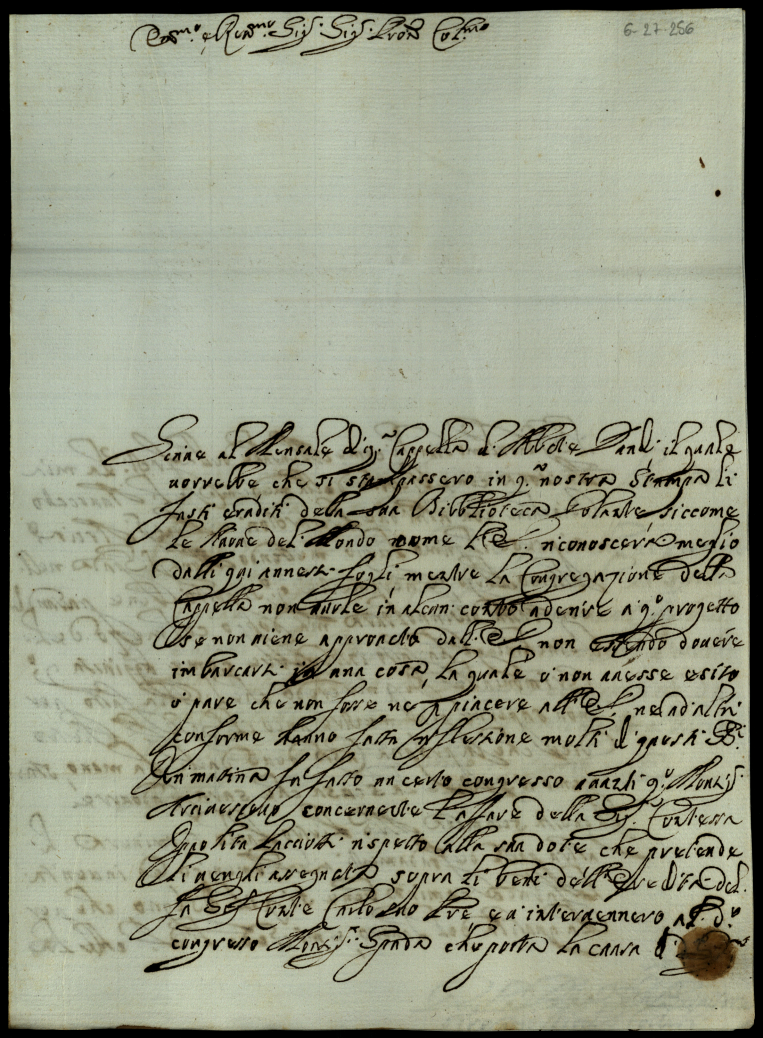 6-27-256
Em.mo e Rev.mo Sig.r Sig.r Pron Col.mo
Scrive al Mensale di q.a Cappella l'Abbate Vandi il quale
vorrebbe che si stampassero in q.a nostra Stampa li
fasti eruditi della sua Bibblioteca Volante, siccome
le nuove del Mondo come V.E. riconoscerà meglio
dalli qui annessi fogli, mentre la Congregazione della
Cappella non vuole in alcun conto aderire a q.o progetto
se non viene approvato dall'E.V. non essendo dovere
imbarcarsi in una cosa, la quale ò non avesse esito
ò pure che non fosse ne à piacere all'E.V. ne ad altri
conforme hanno fatta riflessione molti di questi
Ieri mattina fu fatto un certo congresso avanti q.o Monsig.r
Arcivescovo concernente l'affare della Sig.ra Contessa
Ippolita rispetto alla sua dote che pretende
li venghi assegnata sopra li beni dell'Eredità del
fu Sig.r Conte Carlo suo Pre e vi intervennero al d.o
congresso Monsig.r Spada che porta la causa